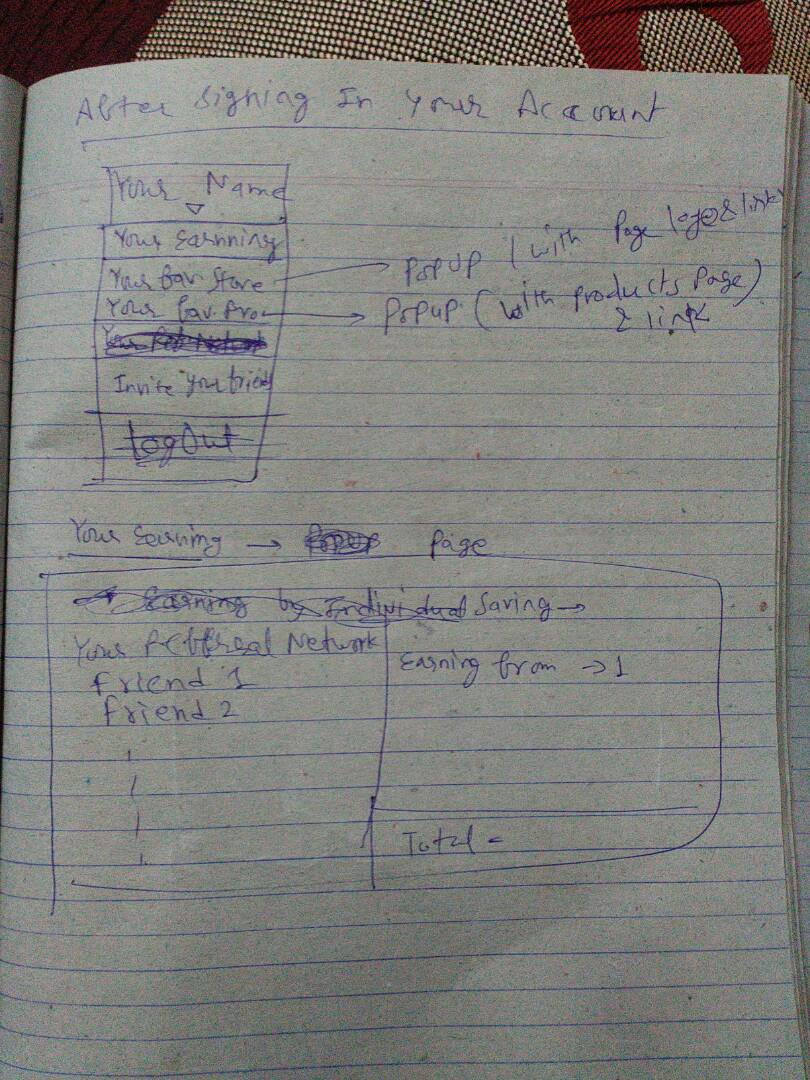 After Signing In Your Account
Your Name
Your Earnning
Your fav. Store → PopUp (with Page logo & link)
Your fav. Pro. → Popup. (with products Page)
& link
Invite your friends
LogOut
Your Earning → Page
Earning by Individual Saving →
Your Refferal Network
Earning from → 1
friend 1
friend 2
Total =